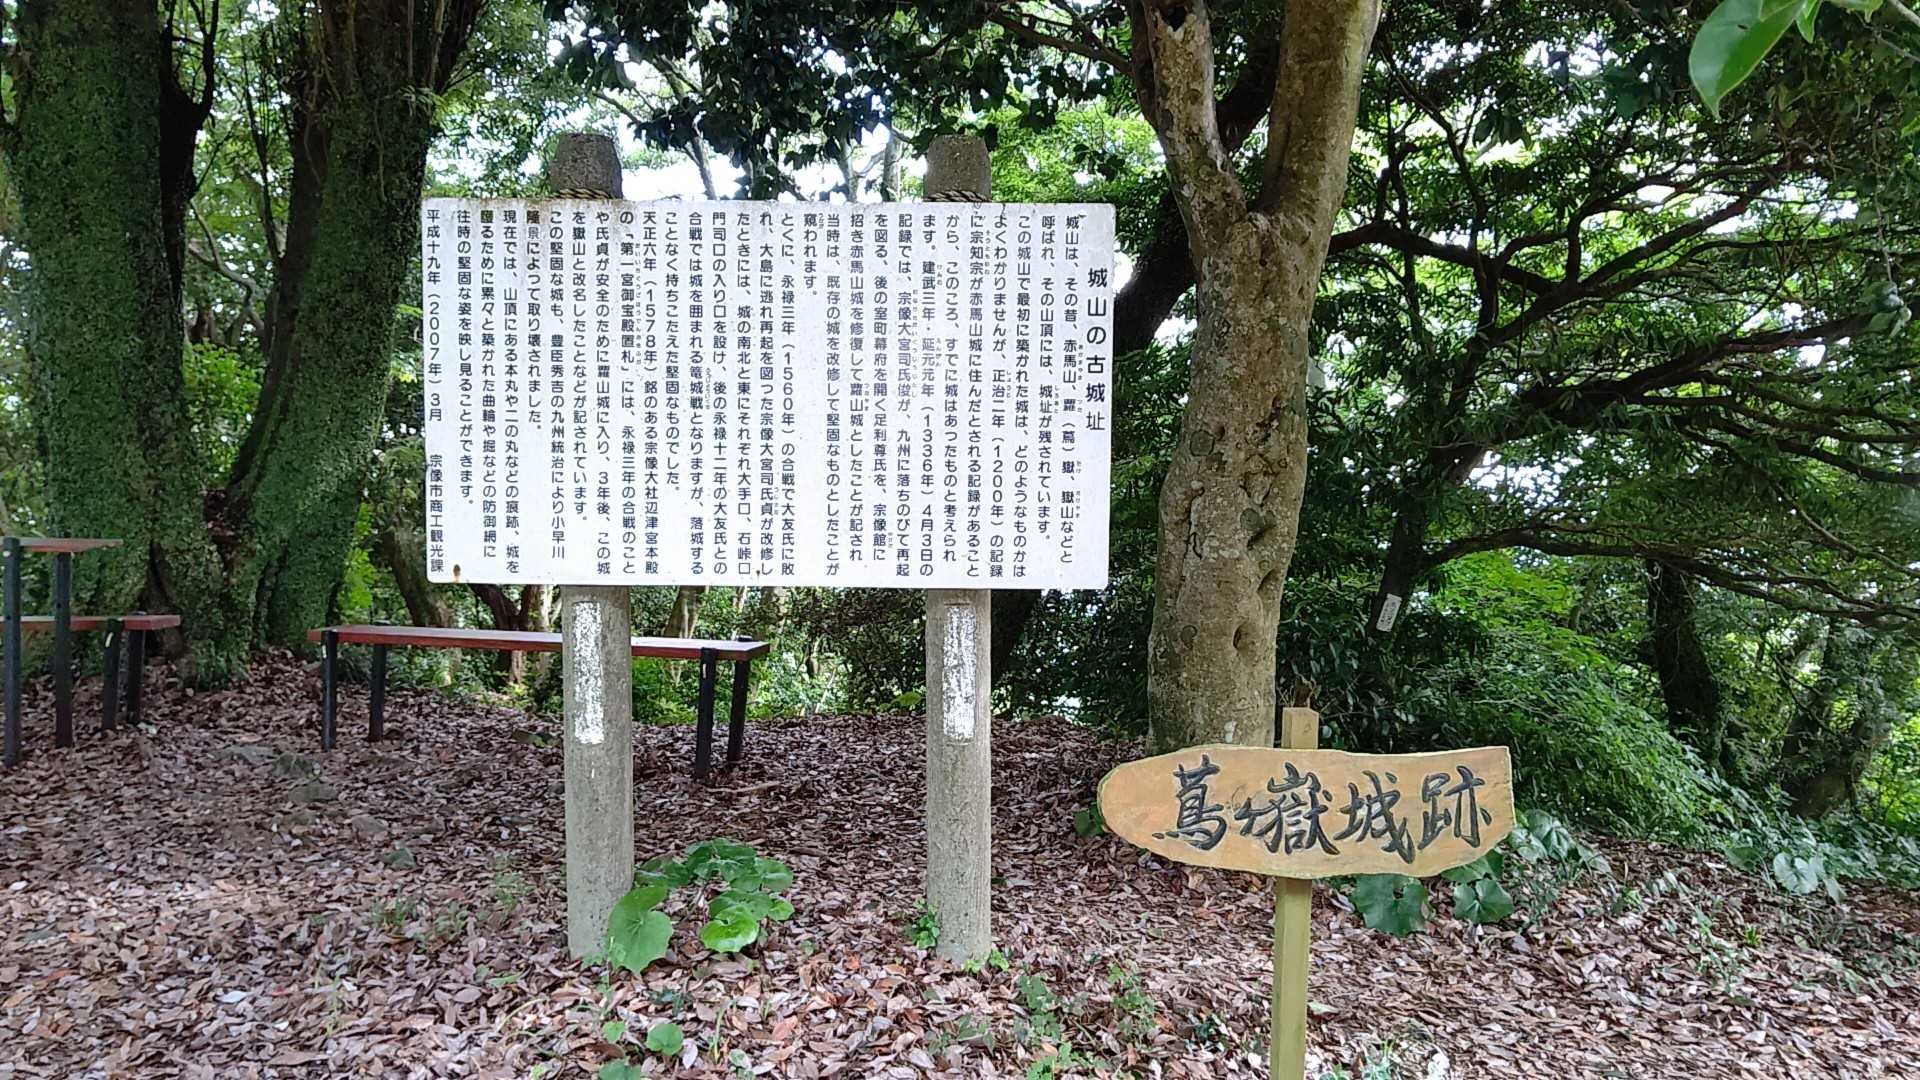 城山の古城址
城山は、その昔、赤馬山、蘿（蔦）嶽、嶽山などと
呼ばれ、その山頂には、城址が残されています。
この城山で最初に築かれた城は、どのようなものかは
よくわかりませんが、正治二年（1200年）の記録
に宗知宗が赤馬山城に住んだとされる記録があること
から、このころ、すでに城はあったものと考えられ
ます。建武三年・延元元年（1336年）4月3日の
記録では、宗像大宮司氏俊が、九州に落ちのびて再起
を図る、後の室町幕府を開く足利尊氏を、宗像館に
招き赤馬山城を修復して蘿山城としたことが記され、
当時は、既存の城を改修して堅固なものとしたことが
窺われます。
とくに、永禄三年（1560年）の合戦で大友氏に敗
れ、大島に逃れ再起を図った宗像大宮司氏貞が改修し
たときには、城の南北と東にそれぞれ大手口、石峠口
門司口の入り口を設け、後の永禄十二年の大友氏との
合戦では城を囲まれる篭城戦となりますが、落城する
ことなく持ちこたえた堅固なものでした。
天正六年（1578年）銘のある宗像大社辺津宮本殿
の「第一宮御宝殿置札」には、永禄三年の合戦のこと
や氏貞が安全のために蘿山城に入り、3年後、この城
を嶽山と改名したことなどが記されています。
この堅固な城も、豊臣秀吉の九州統治により小早川
隆景によって取り壊されました。
現在では、山頂にある本丸や二の丸などの痕跡、城を
護るために累々と築かれた曲輪や掘などの防御網に
往時の堅固な姿を映し見ることができます。
平成十九年（2007年）3月　宗像市商工観光課
蔦ヶ嶽城跡